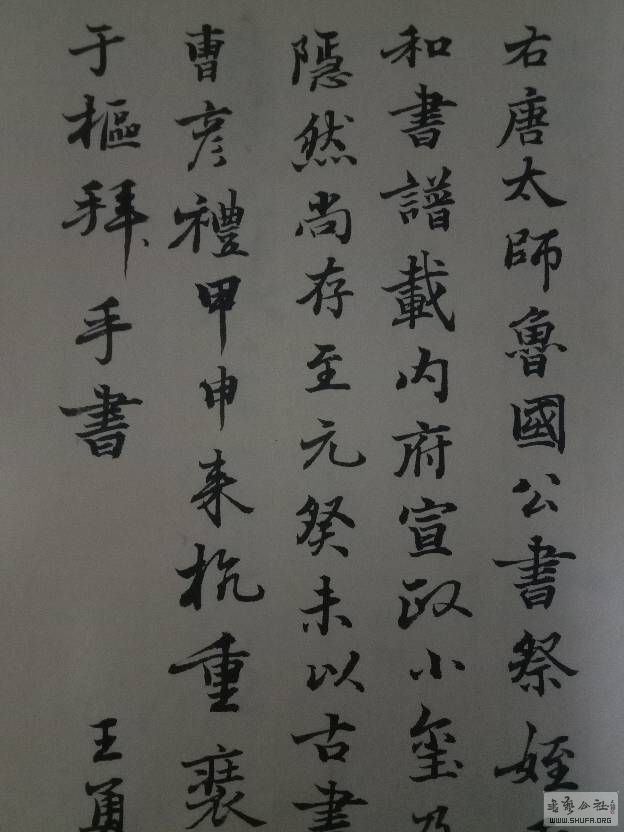 右唐太師魯國公書祭姪
和書譜載内府宣政小璽乃
隱然尚存至元癸未以古書
曹彦禮甲申来杭重裝
于樞拜手書
王勇
WWW.SHUFA.ORG